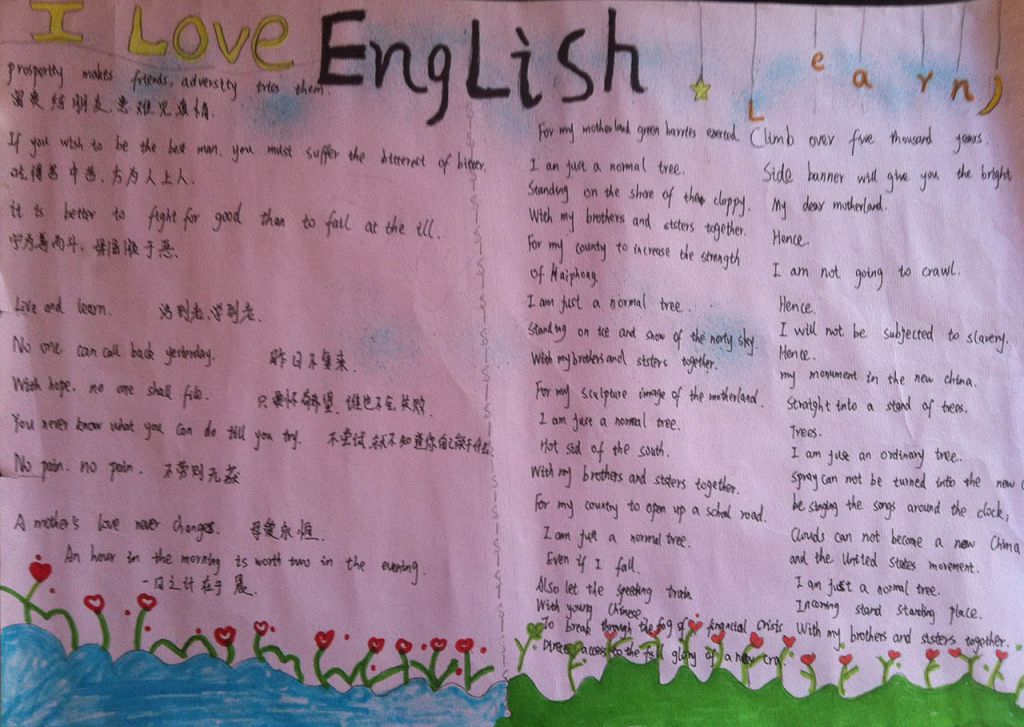 I LOVE ENGLISH
Learn
prosperty makes friends, adversity tries them.
富贵结朋友,患难见真情.
If you wish to be the best man, you must suffer the bitterest of bitter.
吃得苦中苦,方为人上人.
it is better to fight for good than to fail at the ill.
宁为善而斗,毋屈服于恶.
Live and learn. 活到老,学到老.
No one can call back yesterday. 昨日不复来.
With hope. no one shall file. 只要怀有希望,谁也不会失败.
You never know what you can do till you try. 不尝试,就不知道你自己能干什么
No pain. no pain. 不劳则无获
A mother's love never changes. 母爱永恒.
An hour in the morning is worth two in the evening.
一日之计在于晨.
For my motherland green barries exerted
I am just a normal tree.
Standing on the shore of the choppy.
With my brothers and ststers together.
For my county to increase the strength
of Haiphong.
I am just a normal tree.
Standing on ice and snow of the norty sky.
With my brothers and ststers together.
For my sculpture image of the motherland.
I am just a normal tree.
Hot sid of the south.
With my brothers and ststers together.
For my country to open up a schol road.
I am just a normal tree.
Even if I fall.
Also let the speeding train
With young Chinese.
To break through the fog of financial crists
Direct access to the full glory of a new era
Climb over five thousand years.
Side banner will give you the bright,
My dear motherland.
Hence.
I am not going to crawl.
Hence.
I will not be subjected to slavery.
Hence.
my monument in the new china.
Straight into a stand of trees.
Trees.
I am just an ordinary tree.
spray can not be turned into the new
be singing the songs around the clock;
Clouds can not become a new China
and the United States movement.
I am just a normal tree.
Incoming stand standing place.
With my brothers and ststers together.